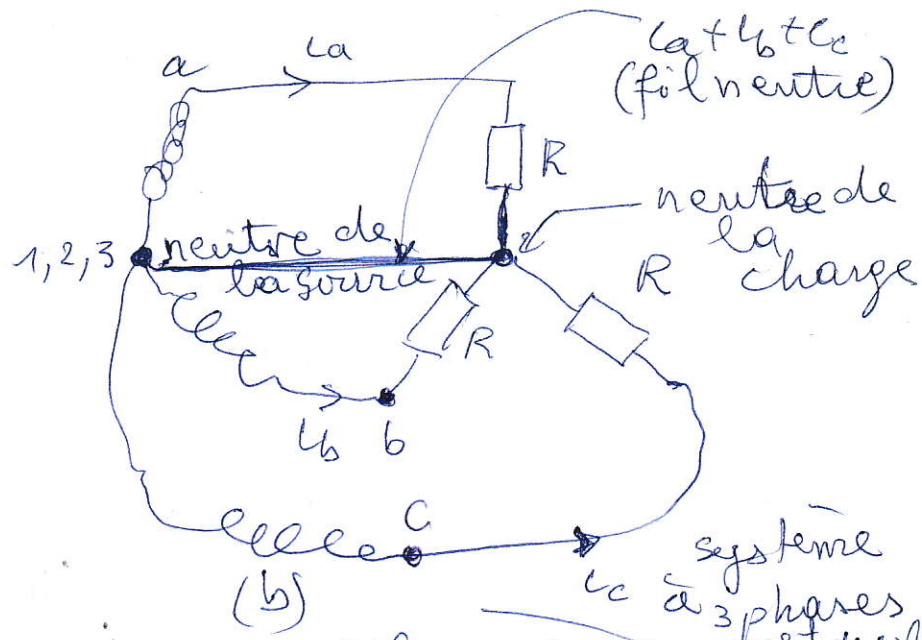 a
ia
ia+ib+ic
(fil neutre)
R
neutre de
la
charge
1,2,3
neutre de
la source
R
R
ib
b
C
ic
(b)
système
à 3 phases